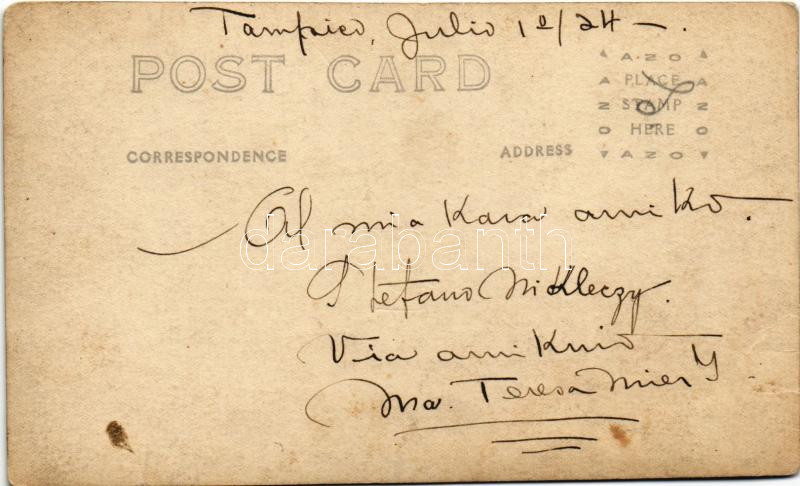 Tampico, Julio 1º/24 -.
POST CARD
AZO
PLACE
STAMP
HERE
AZO
CORRESPONDENCE
ADDRESS
Al mia kara amiko.
Stefano Nikleczy.
Via amikino
Ma. Teresa Mier y
darabanth